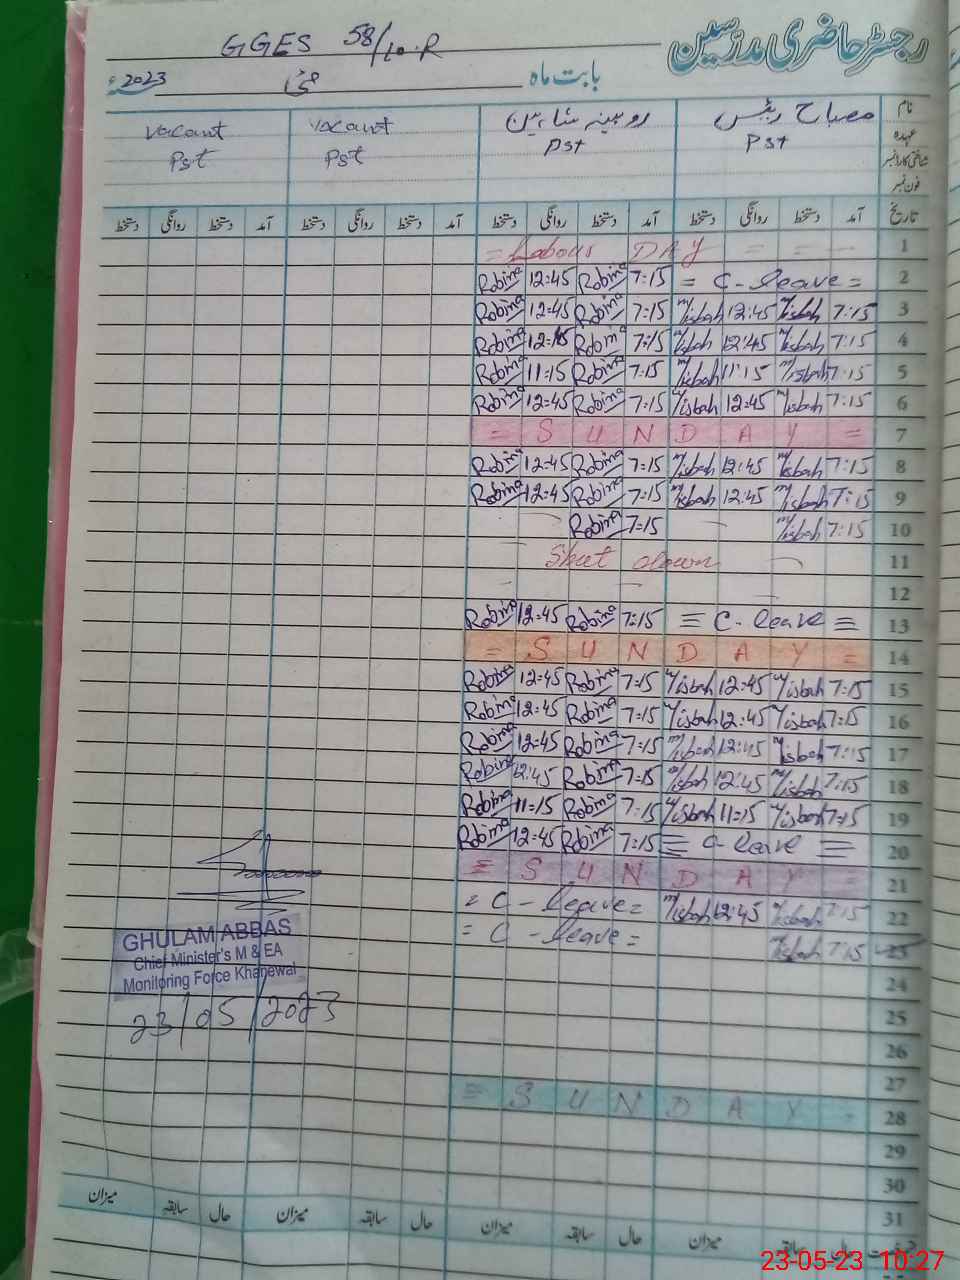 رجسٹر حاضری مدرسین
GGES 58/10.R
بابت ماہ مئی 2023ء
نام مصباح رئیس روبینہ شاہین vacant vacant
عہدہ Pst Pst Pst Pst
شناختی کارڈ نمبر
فون نمبر
تاریخ آمد دستخط روانگی دستخط آمد دستخط روانگی دستخط آمد دستخط روانگی دستخط آمد دستخط روانگی دستخط
= Labour DAY = = — 1
Robina 12:45 Robina 7:15 = C-leave = 2
Robina 12:45 Robina 7:15 Misbah 12:45 Misbah 7:15 3
Robina 12:45 Robina 7:15 Misbah 12:45 Misbah 7:15 4
Robina 11:15 Robina 7:15 Misbah 11:15 Misbah 7:15 5
Robina 12:45 Robina 7:15 Misbah 12:45 Misbah 7:15 6
= S U N D A Y = 7
Robina 12:45 Robina 7:15 Misbah 12:45 Misbah 7:15 8
Robina 12:45 Robina 7:15 Misbah 12:45 Misbah 7:15 9
Robina 7:15 Misbah 7:15 10
Shut down 11
12
Robina 12:45 Robina 7:15 = C-leave = 13
= S U N D A Y = 14
Robina 12:45 Robina 7:15 Misbah 12:45 Misbah 7:15 15
Robina 12:45 Robina 7:15 Misbah 12:45 Misbah 7:15 16
Robina 12:45 Robina 7:15 Misbah 12:45 Misbah 7:15 17
Robina 12:45 Robina 7:15 Misbah 12:45 Misbah 7:15 18
Robina 11:15 Robina 7:15 Misbah 11:15 Misbah 7:15 19
Robina 12:45 Robina 7:15 = C-leave = 20
= S U N D A Y = 21
= C-leave = Misbah 12:45 Misbah 7:15 22
= C-leave = Misbah 7:15 23
GHULAM ABBAS
Chief Minister's M & EA
Monitoring Force Khanewal
23/05/2023
24
25
26
27
= S U N D A Y = 28
29
30
31
حال سابقہ میزان حال سابقہ میزان حال سابقہ میزان حال سابقہ میزان
23-05-23 10:27